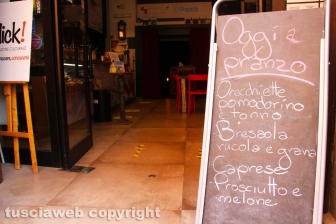 lick!
Oggi a
pranzo
Orecchiette
pomodorino
e tonno
Bresaola
rucola e grana
Caprese
Prosciutto e
melone
tusciaweb copyright